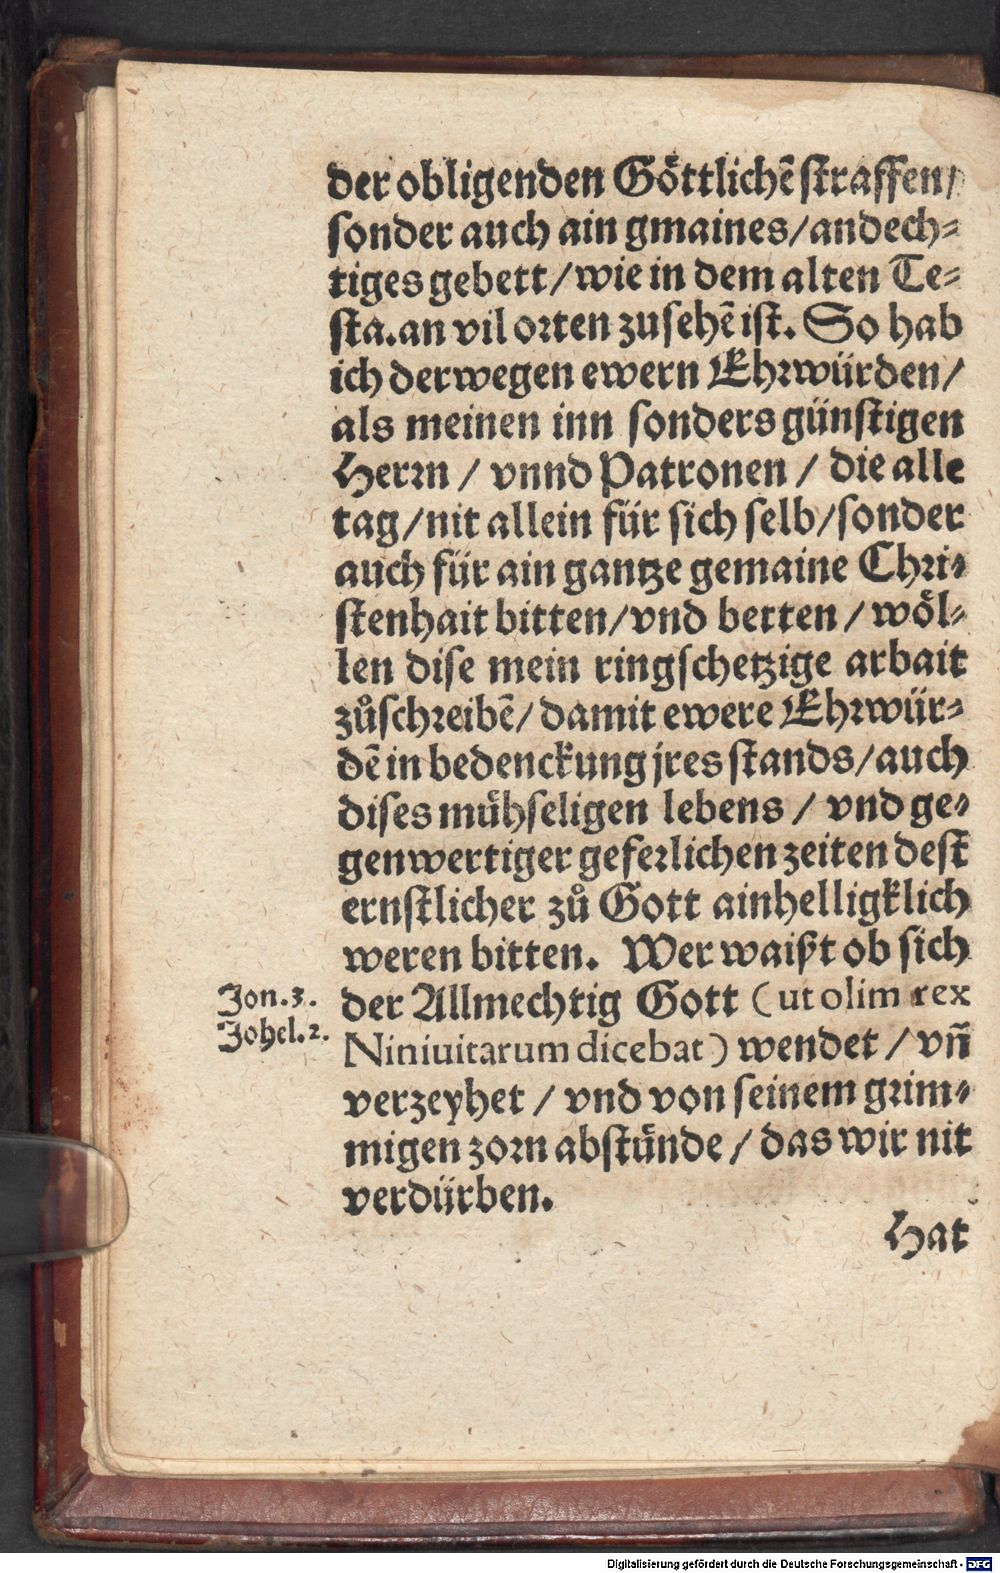 der obligenden Göttlichē straffen/
sonder auch ain gmaines/andech-
tiges gebett/wie in dem alten Te-
sta.an vil orten zusehē ist. So hab
ich derwegen ewern Ehrwürden/
als meinen inn sonders günstigen
Herrn / vnnd Patronen / die alle
tag/nit allein für sich selb/sonder
auch für ain gantze gemaine Chri-
stenhait bitten/vnd betten / wöl-
len dise mein ringschetzige arbait
zůschreibē/damit ewere Ehrwür-
dē in bedenckung jres stands/auch
dises mühseligen lebens / vnd ge-
genwertiger geferlichen zeiten dest
ernstlicher zů Gott ainhelligklich
weren bitten. Wer waißt ob sich
Jon.3. der Allmechtig Gott (ut olim rex
Johel.2. Niniuitarum dicebat) wendet / vñ
verzeyhet / vnd von seinem grim-
migen zorn abstünde / das wir nit
verdürben.
Hat
Digitalisierung gefördert durch die Deutsche Forschungsgemeinschaft - DFG